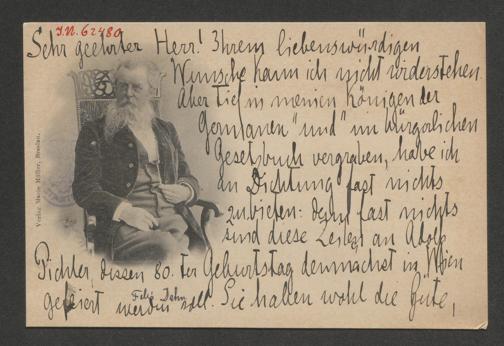 J.N. 62480
Sehr geehrter Herr! Ihrem liebenswürdigen
Wunsche kann ich nicht widerstehen.
Aber tief in meinen Königen der
Germanen" und" im bürgerlichen
Gesetzbuch vergraben, habe ich
an Dichtung fast nichts
zu bieten: denn fast nichts
sind diese Zeilen an Adolf
Pichler, dessen 80. ter Geburtstag demnächst in Wien
gefeiert werden soll. Sie haben wohl die Güte,
Felix Dahn
Verlag Marie Müller, Breslau.